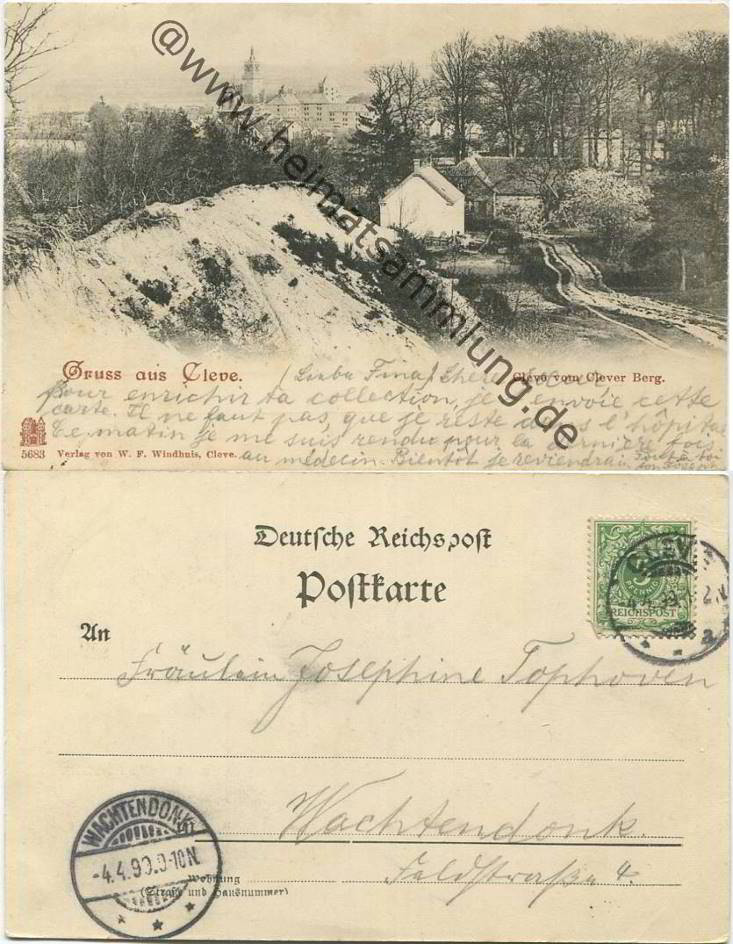 @www.heimatsammlung.de
Gruss aus Cleve. (Liebe Fina) Chère
Cleve vom Clever Berg.
Pour enrichir ta collection, je t'envoie cette
carte. Il ne faut pas, que je reste dans l'hôpital
Ce matin je me suis rendu pour la dernière fois
au médecin. Bientôt je reviendrai. Tout à toi
ton Joseph
5683 Verlag von W. F. Windhuis, Cleve.
Deutsche Reichspost
Postkarte
CLEVE
-4.4.99. 1-2N.
a
5
REICHSPOST
An
Fräulein Josephine Tophoven
in
Wachtendonk.
Feldstraße 4.
Wohnung
(Straße und Hausnummer)
WACHTENDONK
-4.4.99.9-10N.